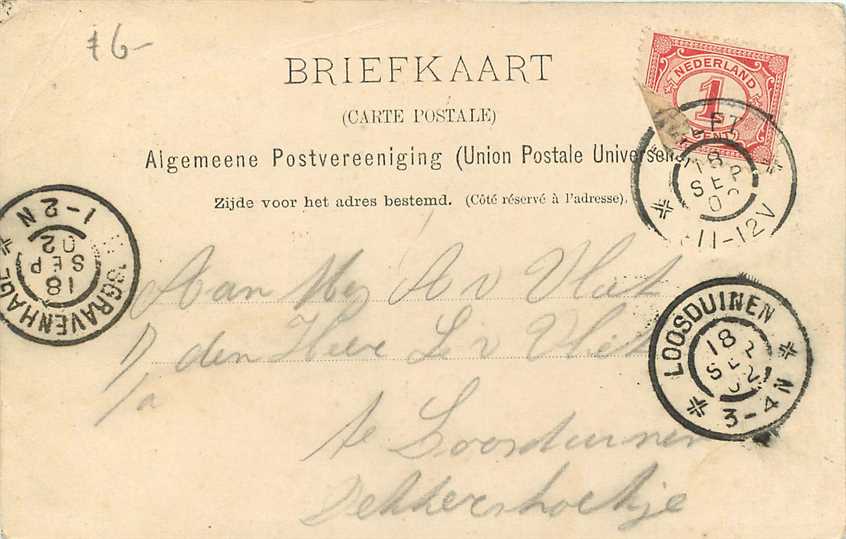 f6-
BRIEFKAART
(CARTE POSTALE)
Algemeene Postvereeniging (Union Postale Universelle)
Zijde voor het adres bestemd. (Côté réservé à l'adresse).
NEDERLAND
1
CENT
18 SEP 02
11-12V
'S GRAVENHAGE
18 SEP 02
1-2 N
LOOSDUINEN
18 SEP 02
3-4 N
Aan Mej A v Vliet
p/a den Heer L v Vliet
te Loosduinen
Dekkershoekje